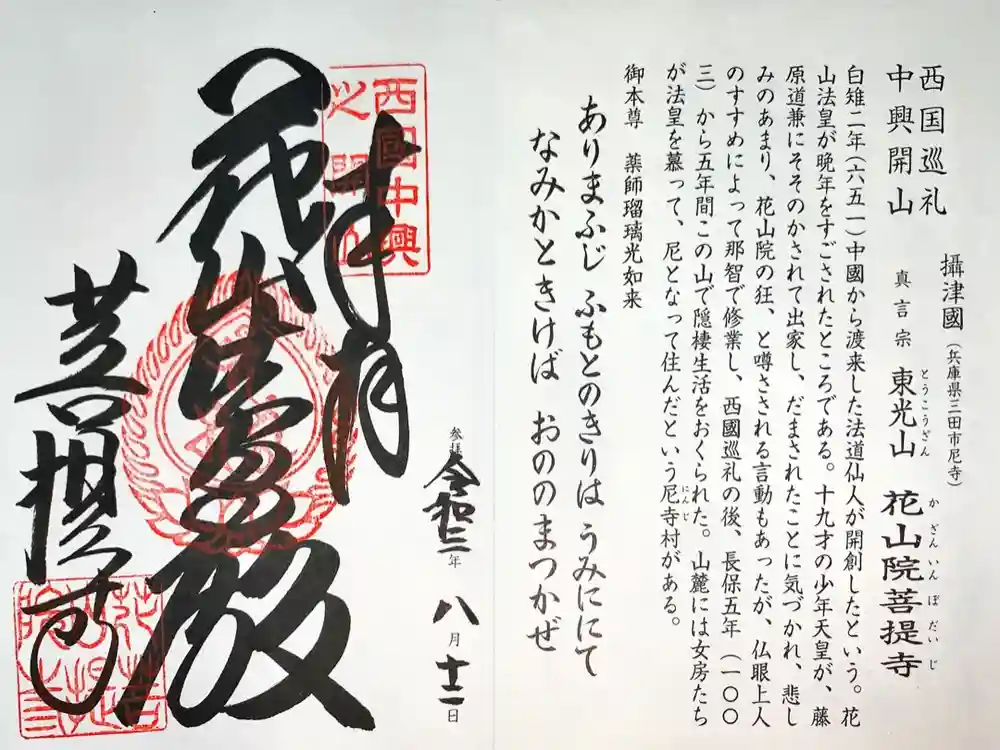 西国巡礼
中興開山
攝津國(兵庫県三田市尼寺)
真言宗 東光山 花山院菩提寺
とうこうざん か ざん いん ぼ だい じ
白雉二年(六五一)中國から渡来した法道仙人が開創したという。花
山法皇が晩年をすごされたところである。十九才の少年天皇が、藤
原道兼にそそのかされて出家し、だまされたことに気づかれ、悲し
みのあまり、花山院の狂、と噂される言動もあったが、仏眼上人
のすすめによって那智で修業し、西國巡礼の後、長保五年(一〇〇
三)から五年間この山で隠棲生活をおくられた。山麓には女房たち
が法皇を慕って、尼となって住んだという尼寺村がある。
にんじ
御本尊 薬師瑠璃光如来
ありまふじ ふもとのきりは うみににて
なみかときけば おののまつかぜ
参拝 令和三年 八月十二日
奉拝
西國中興
之開山
花山法皇殿
菩提寺